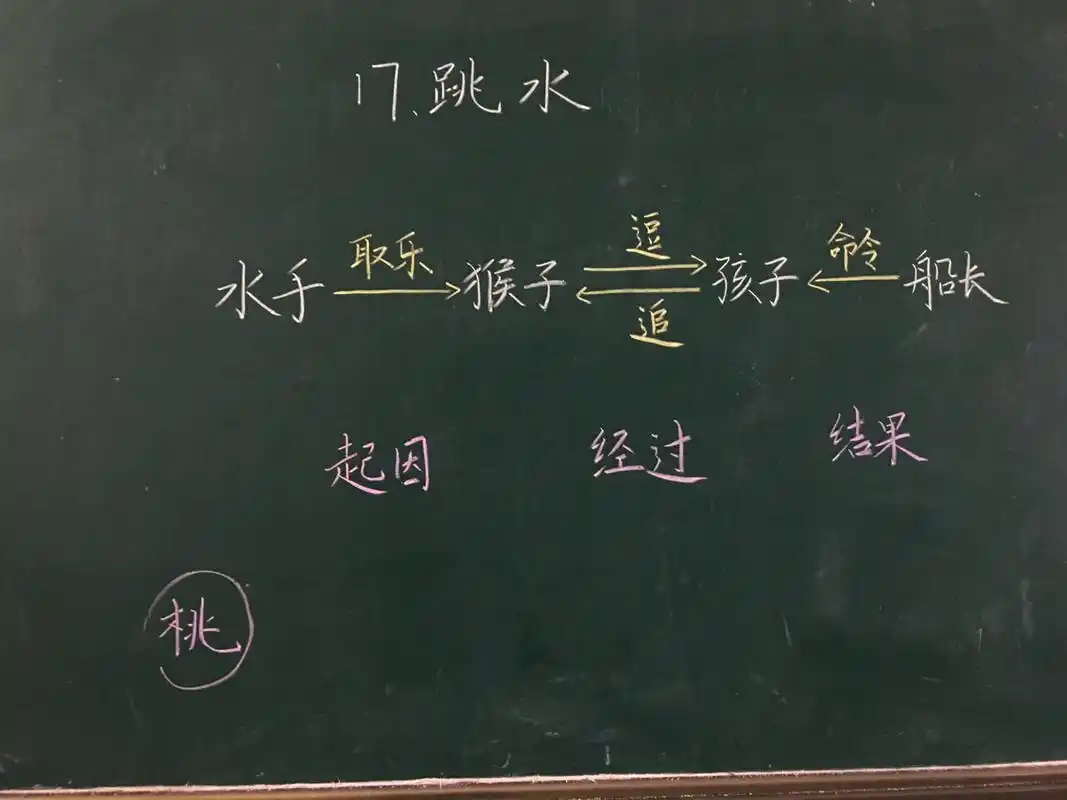 17.跳水
取乐 逗 命令
水手 猴子 孩子 船长
追
起因 经过 结果
桃